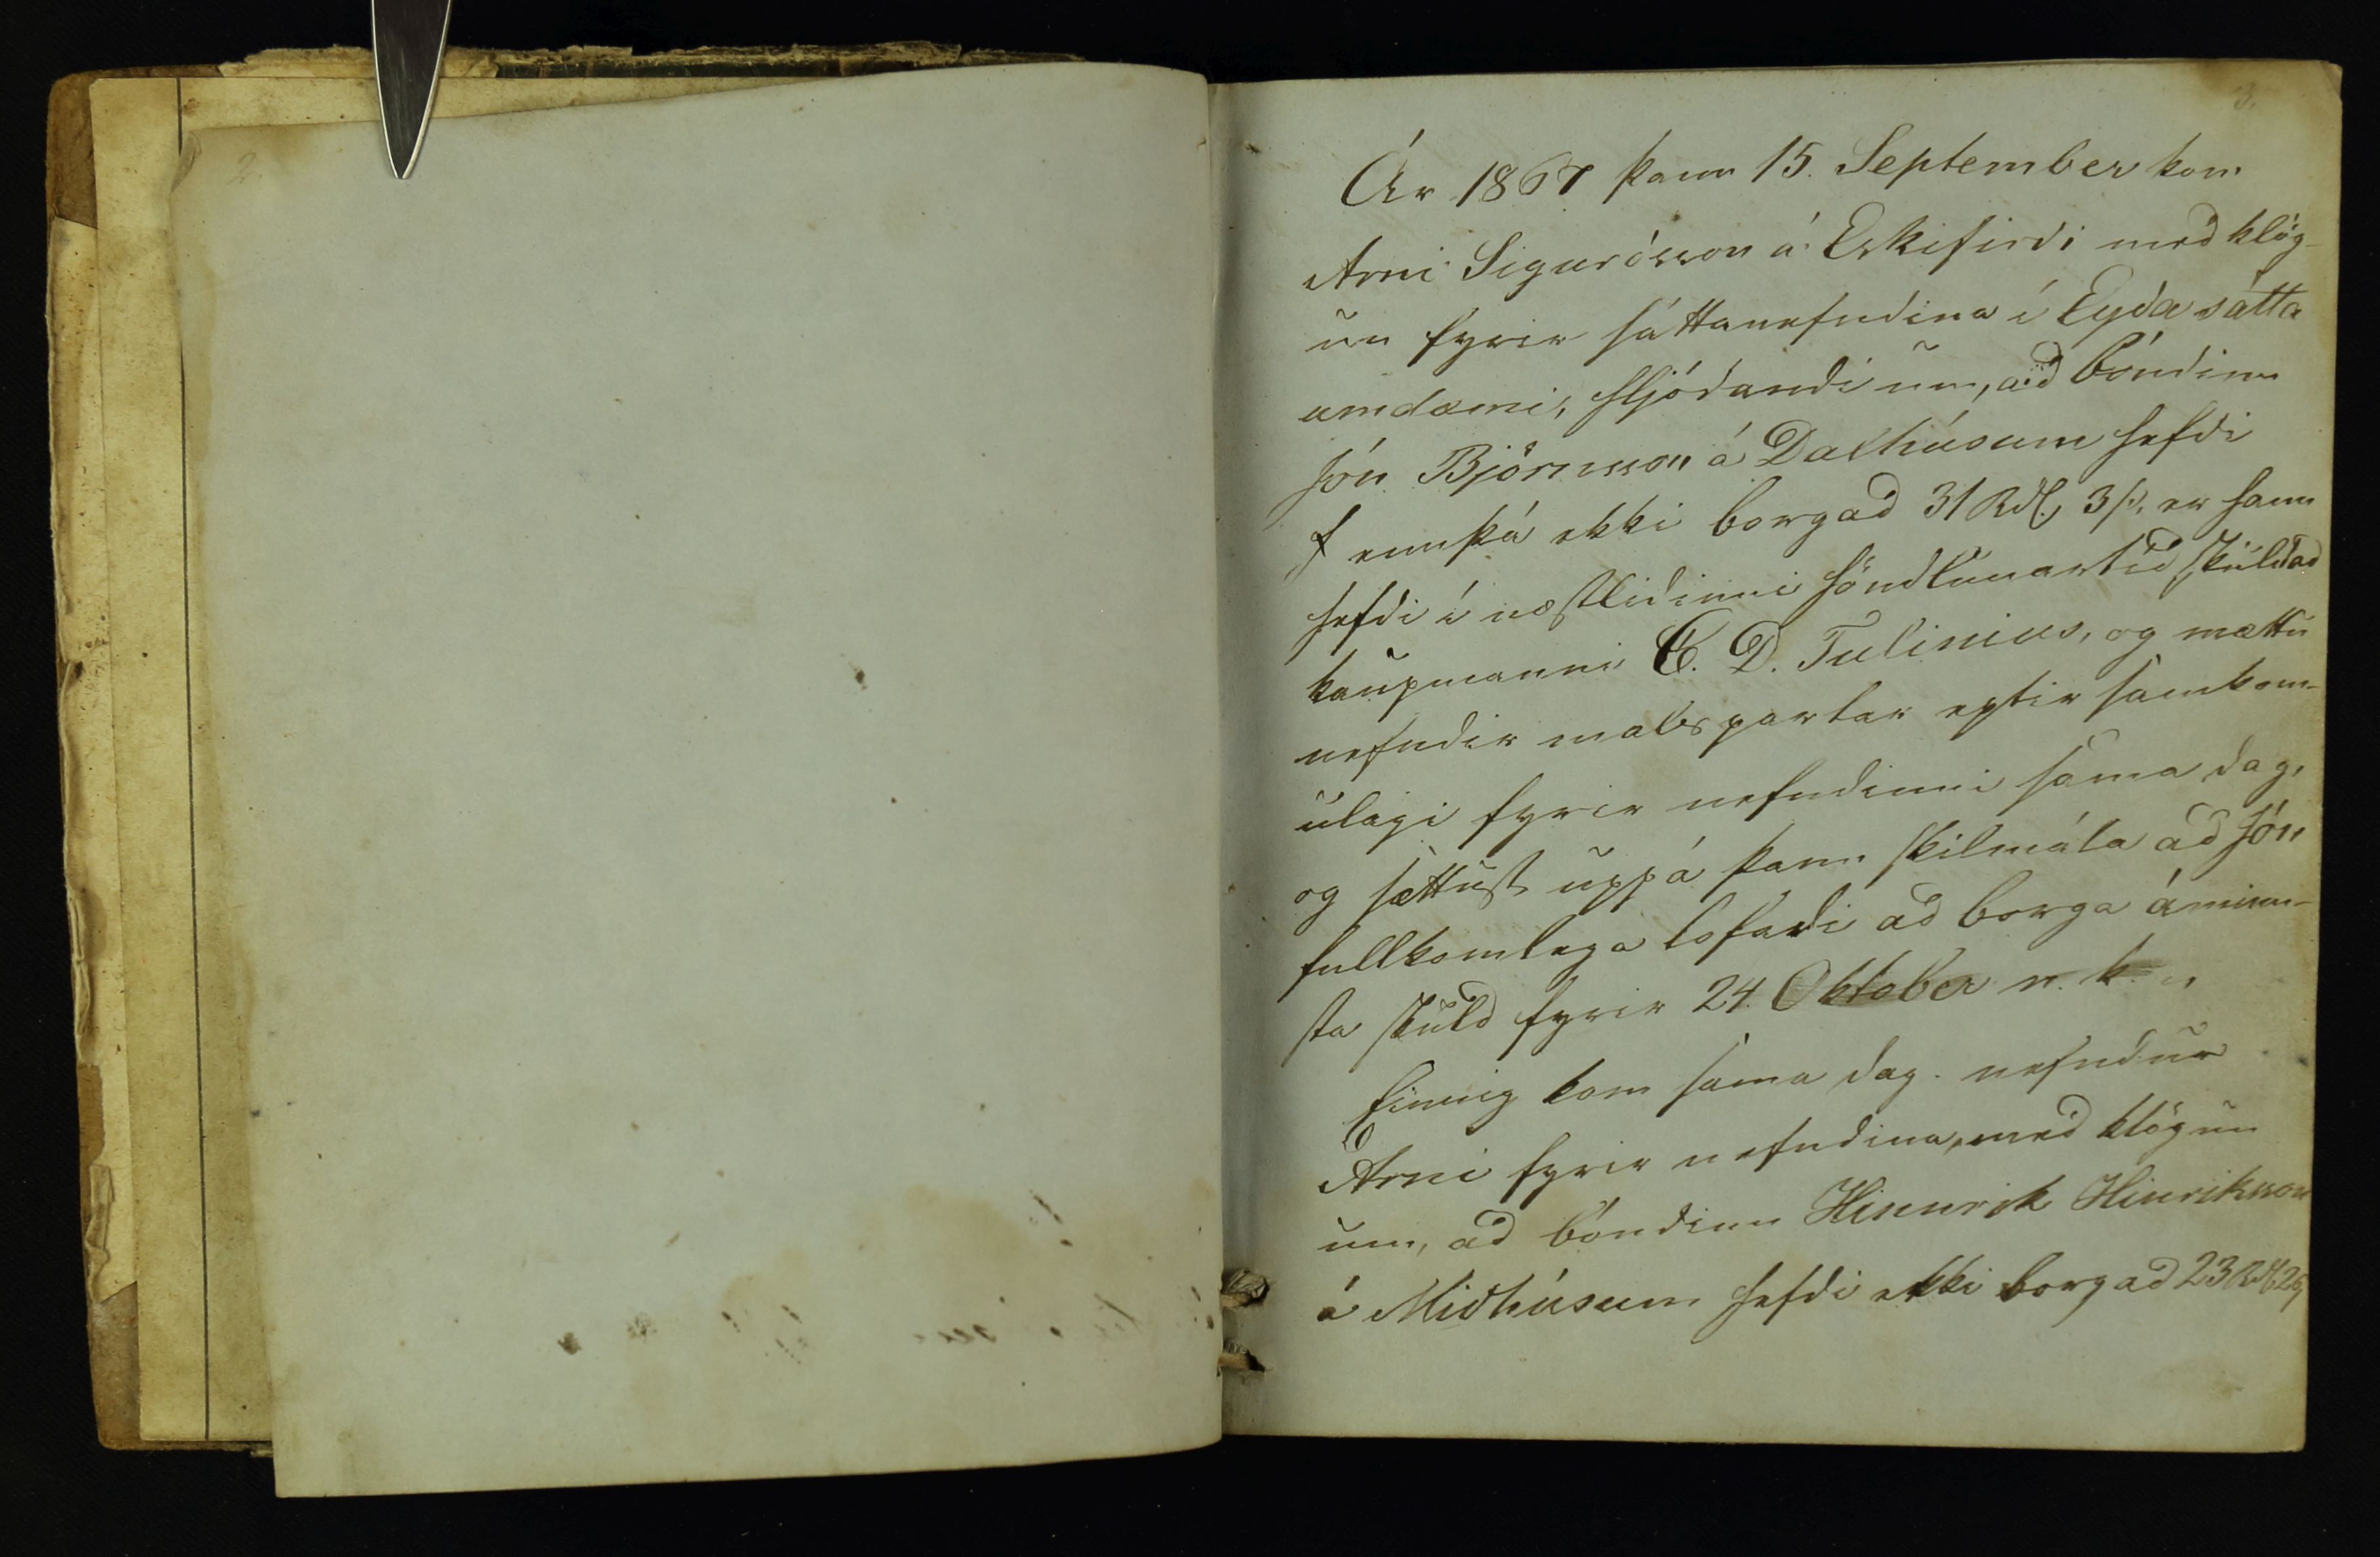 2.
3.
Ár 1867 þann 15. September kom
Arni Sigurdsson á Eskifirdi med klög-
un fyrir sáttanefndina í Eyda sátta
umdæmi, hljódandi um, ad bóndinn
Jón Björnsson á Dalhúsum hefdi
ennþá ekki borgad 31 Rdl. 3 s. er hann
hefdi í næstlidinni höndlunartíd skuldad
kaupmanni C. D. Tulinius, og mættu
nefndir málspartar eptir samkom-
ulagi fyrir nefndinni sama dag,
og sættust uppá þann skilmála ad Jón
fullkomlega lofadi ad borga áminn-
sta skuld fyrir 24. Oktober n. k.
Einnig kom sama dag nefndur
Arni fyrir nefndina, med klögun
um, ad bóndinn Hinnrik Hinriksson
á Midhúsum hefdi ekki borgad 23 Rdl. 26